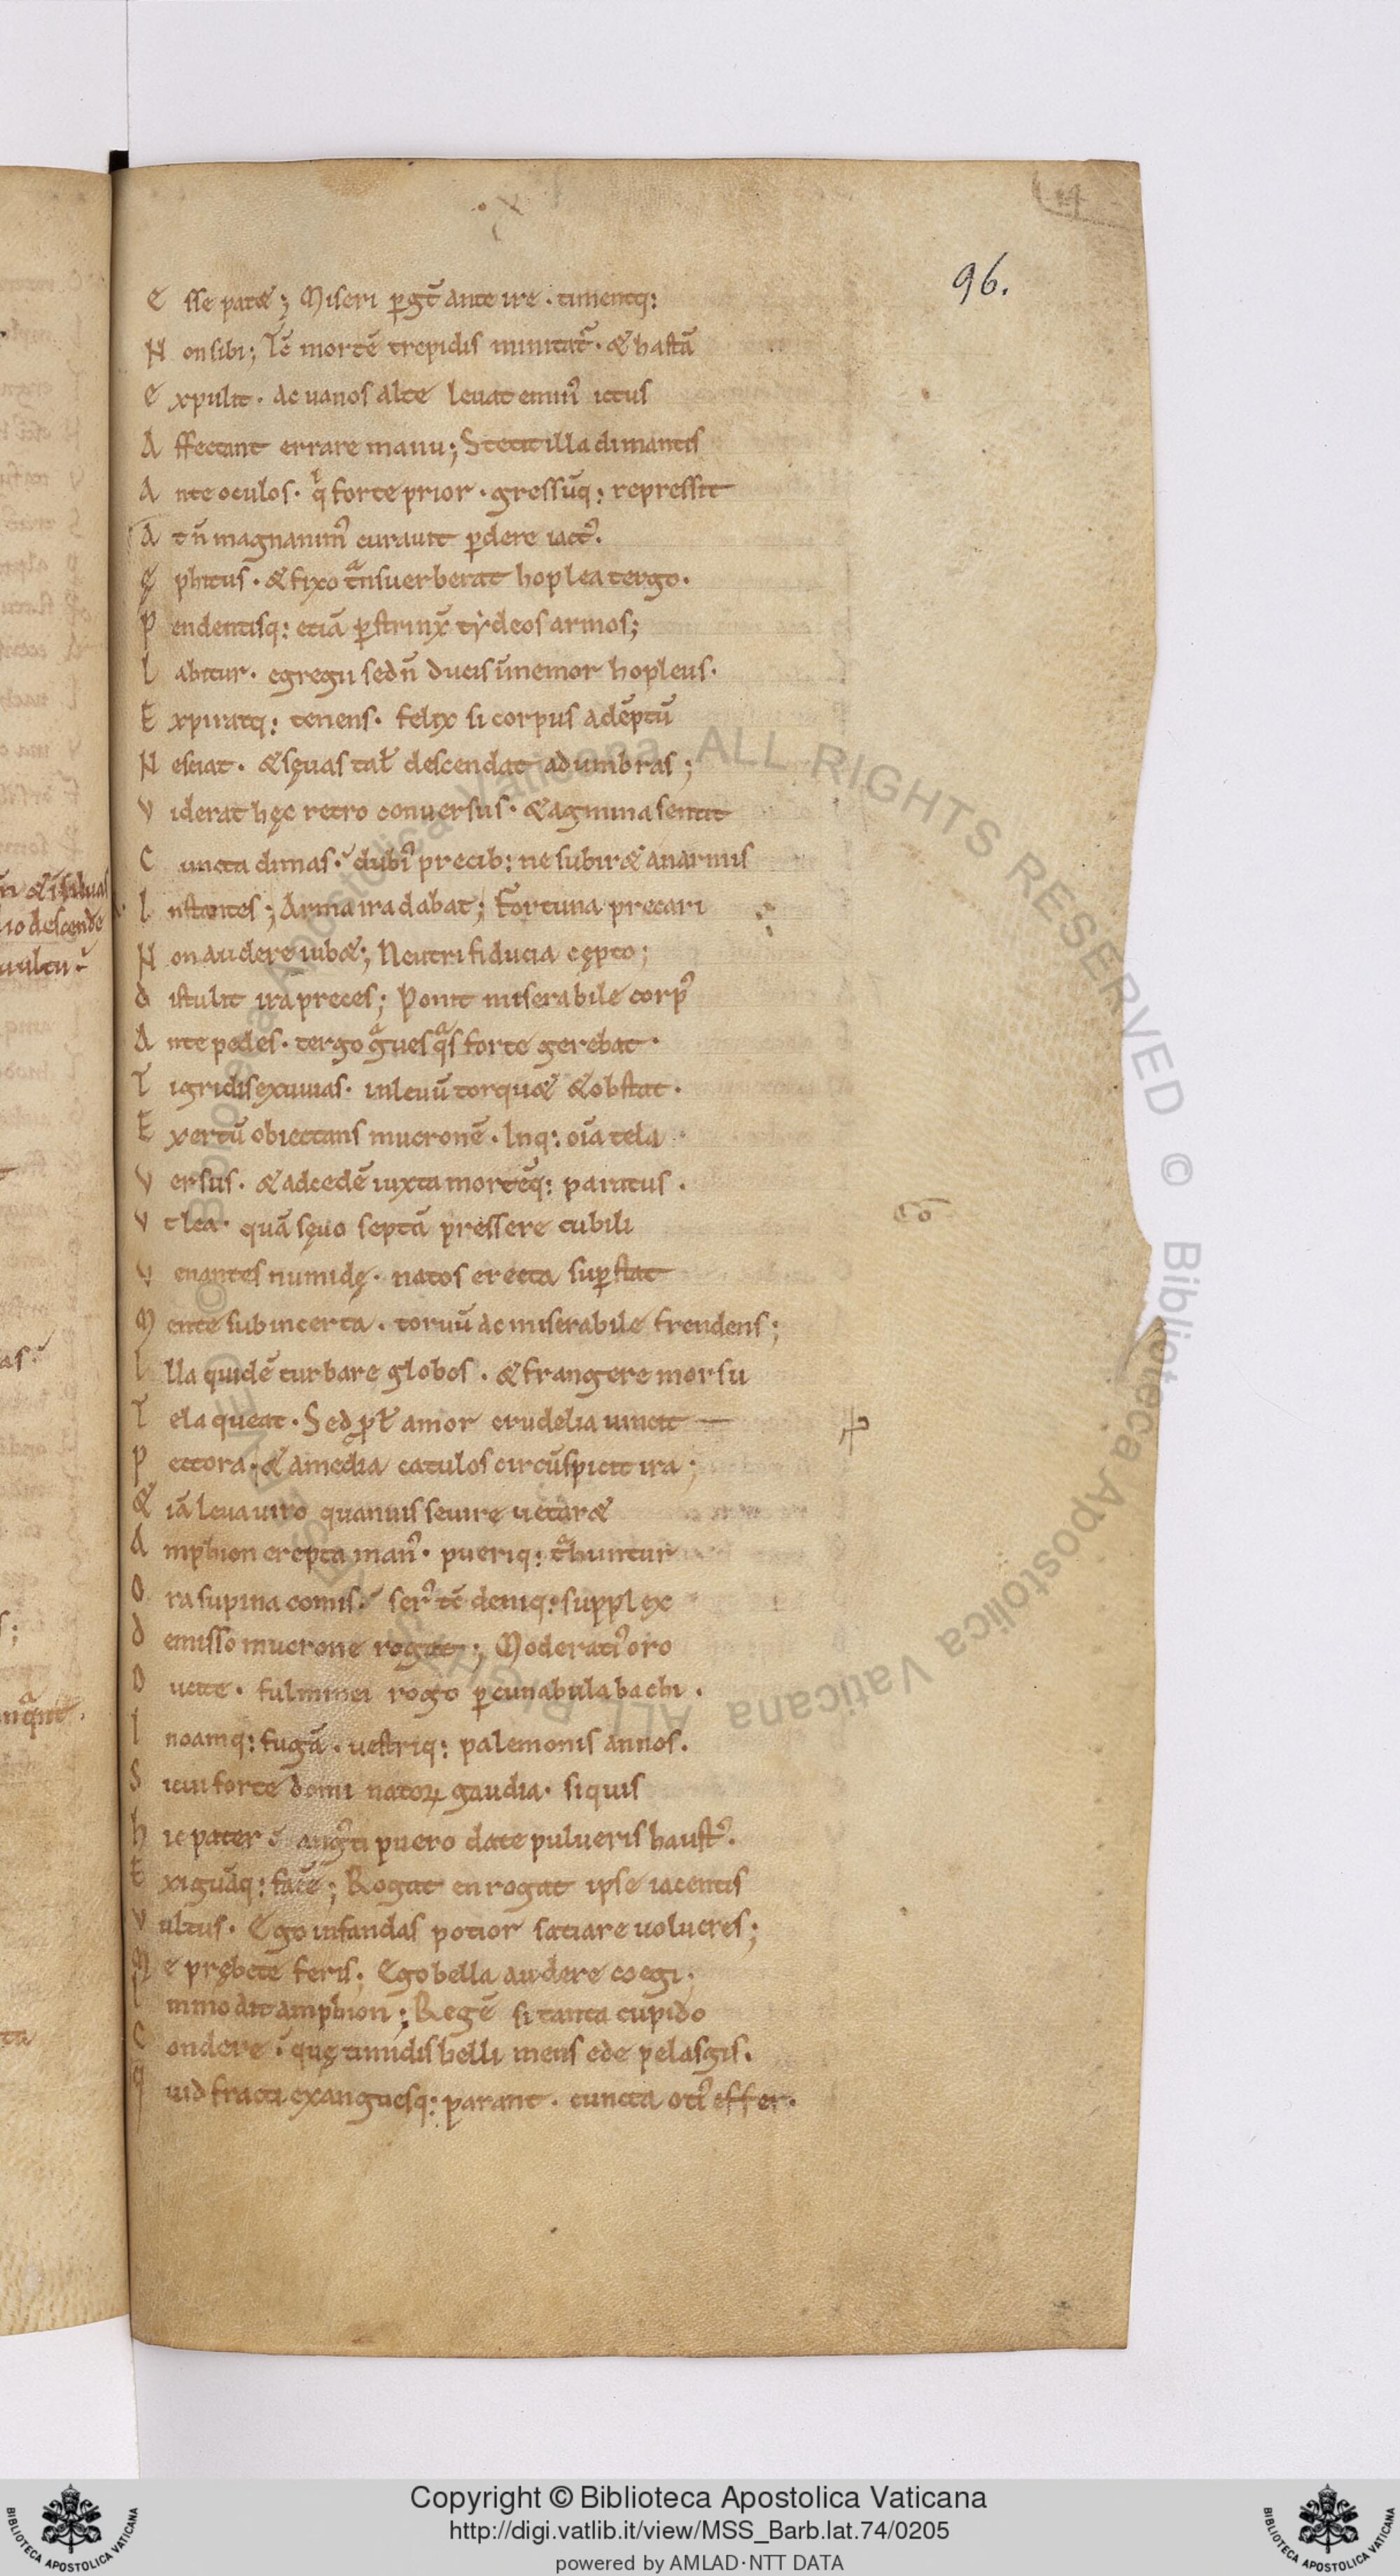 96.
E sse patæ; Miseri ꝑgt̄ ante ire . timentq:
N on sibi; Tē mortē trepidis minitat᷑ · & hastā
E xpulit · ac uanos alte leuat emin᷒ ictus
A ffectant errare manu; Stetit illa dimantis
A nte oculos · qͥ forte prior · gressūq: repressit
A t n̄ magnanim᷒ curauit ꝑdere iact᷒.
Ę phitus · & fixo tͣnsuerberat hoplea tergo.
P endentisq: etiā ꝑstrinx̄ tẏdeos armos;
L abitur · egregii sed n̄ ducis īmemor hopleus.
E xpiratq: tenens · felix si corpus adēptū
N esciat · & sęuas tał descendat ad umbras;
V iderat hęc retro conuersus · & agmina sentit
C uncta dimas · dubi᷒ precib: ne subiræ an armis
I nstantes; Arma ira dabat; Fortuna precari
N on audere iubæ; Neutri fiducia cępto;
D istulit ira preces; Ponit miserabile corp᷒
A nte pedes · tergo gͣues qͣs forte gerebat ·
T igridis exuuias · in leuū torquæ & obstat ·
E xertū obiectans mucronē · Inq: oīa tela
V ersus · & ad cedē iuxta mortēq: paratus .
V t lea · quā sęuo septā pressere cubili
V enantes numidę · natos erecta suꝑstat
M ente sub incerta . toruū ac miserabile frendens;
I lla quidē turbare globos . & frangere morsu
T ela queat · Sed ꝓł amor crudelia uincit
P ectora · & a media catulos circūspicit ira;
& iā leua uiro quamuis seuire uetaræ
A mphion erepta man᷒ · pueriq: tͣhuntur
O ra supina comis · ser᷒ tē deniq: supplex
D emisso mucrone rogat; Moderati᷒ oro
D ucite · fulminei rogo ꝑ cunabula bachi .
I noamq: fugā . uestriq: palemonis annos.
S icui forte domi natoꝝ gaudia · si quis
h ic pater ē angͥti puero date pulueris haust᷒.
E xiguāq: facē; Rogat en rogat ipse iacentis
V ultus · Ego infandas potior satiare uolucres;
M e prębete feris; Ego bella audere coegi;
I mmo ait amphion; Regē si tanta cupido
C ondere · quę timidis belli mens ede pelasgis.
q uid fracti exanguesq: parant . cuncta oci᷒ effer.
Copyright © Biblioteca Apostolica Vaticana
http://digi.vatlib.it/view/MSS_Barb.lat.74/0205
powered by AMLAD·NTT DATA